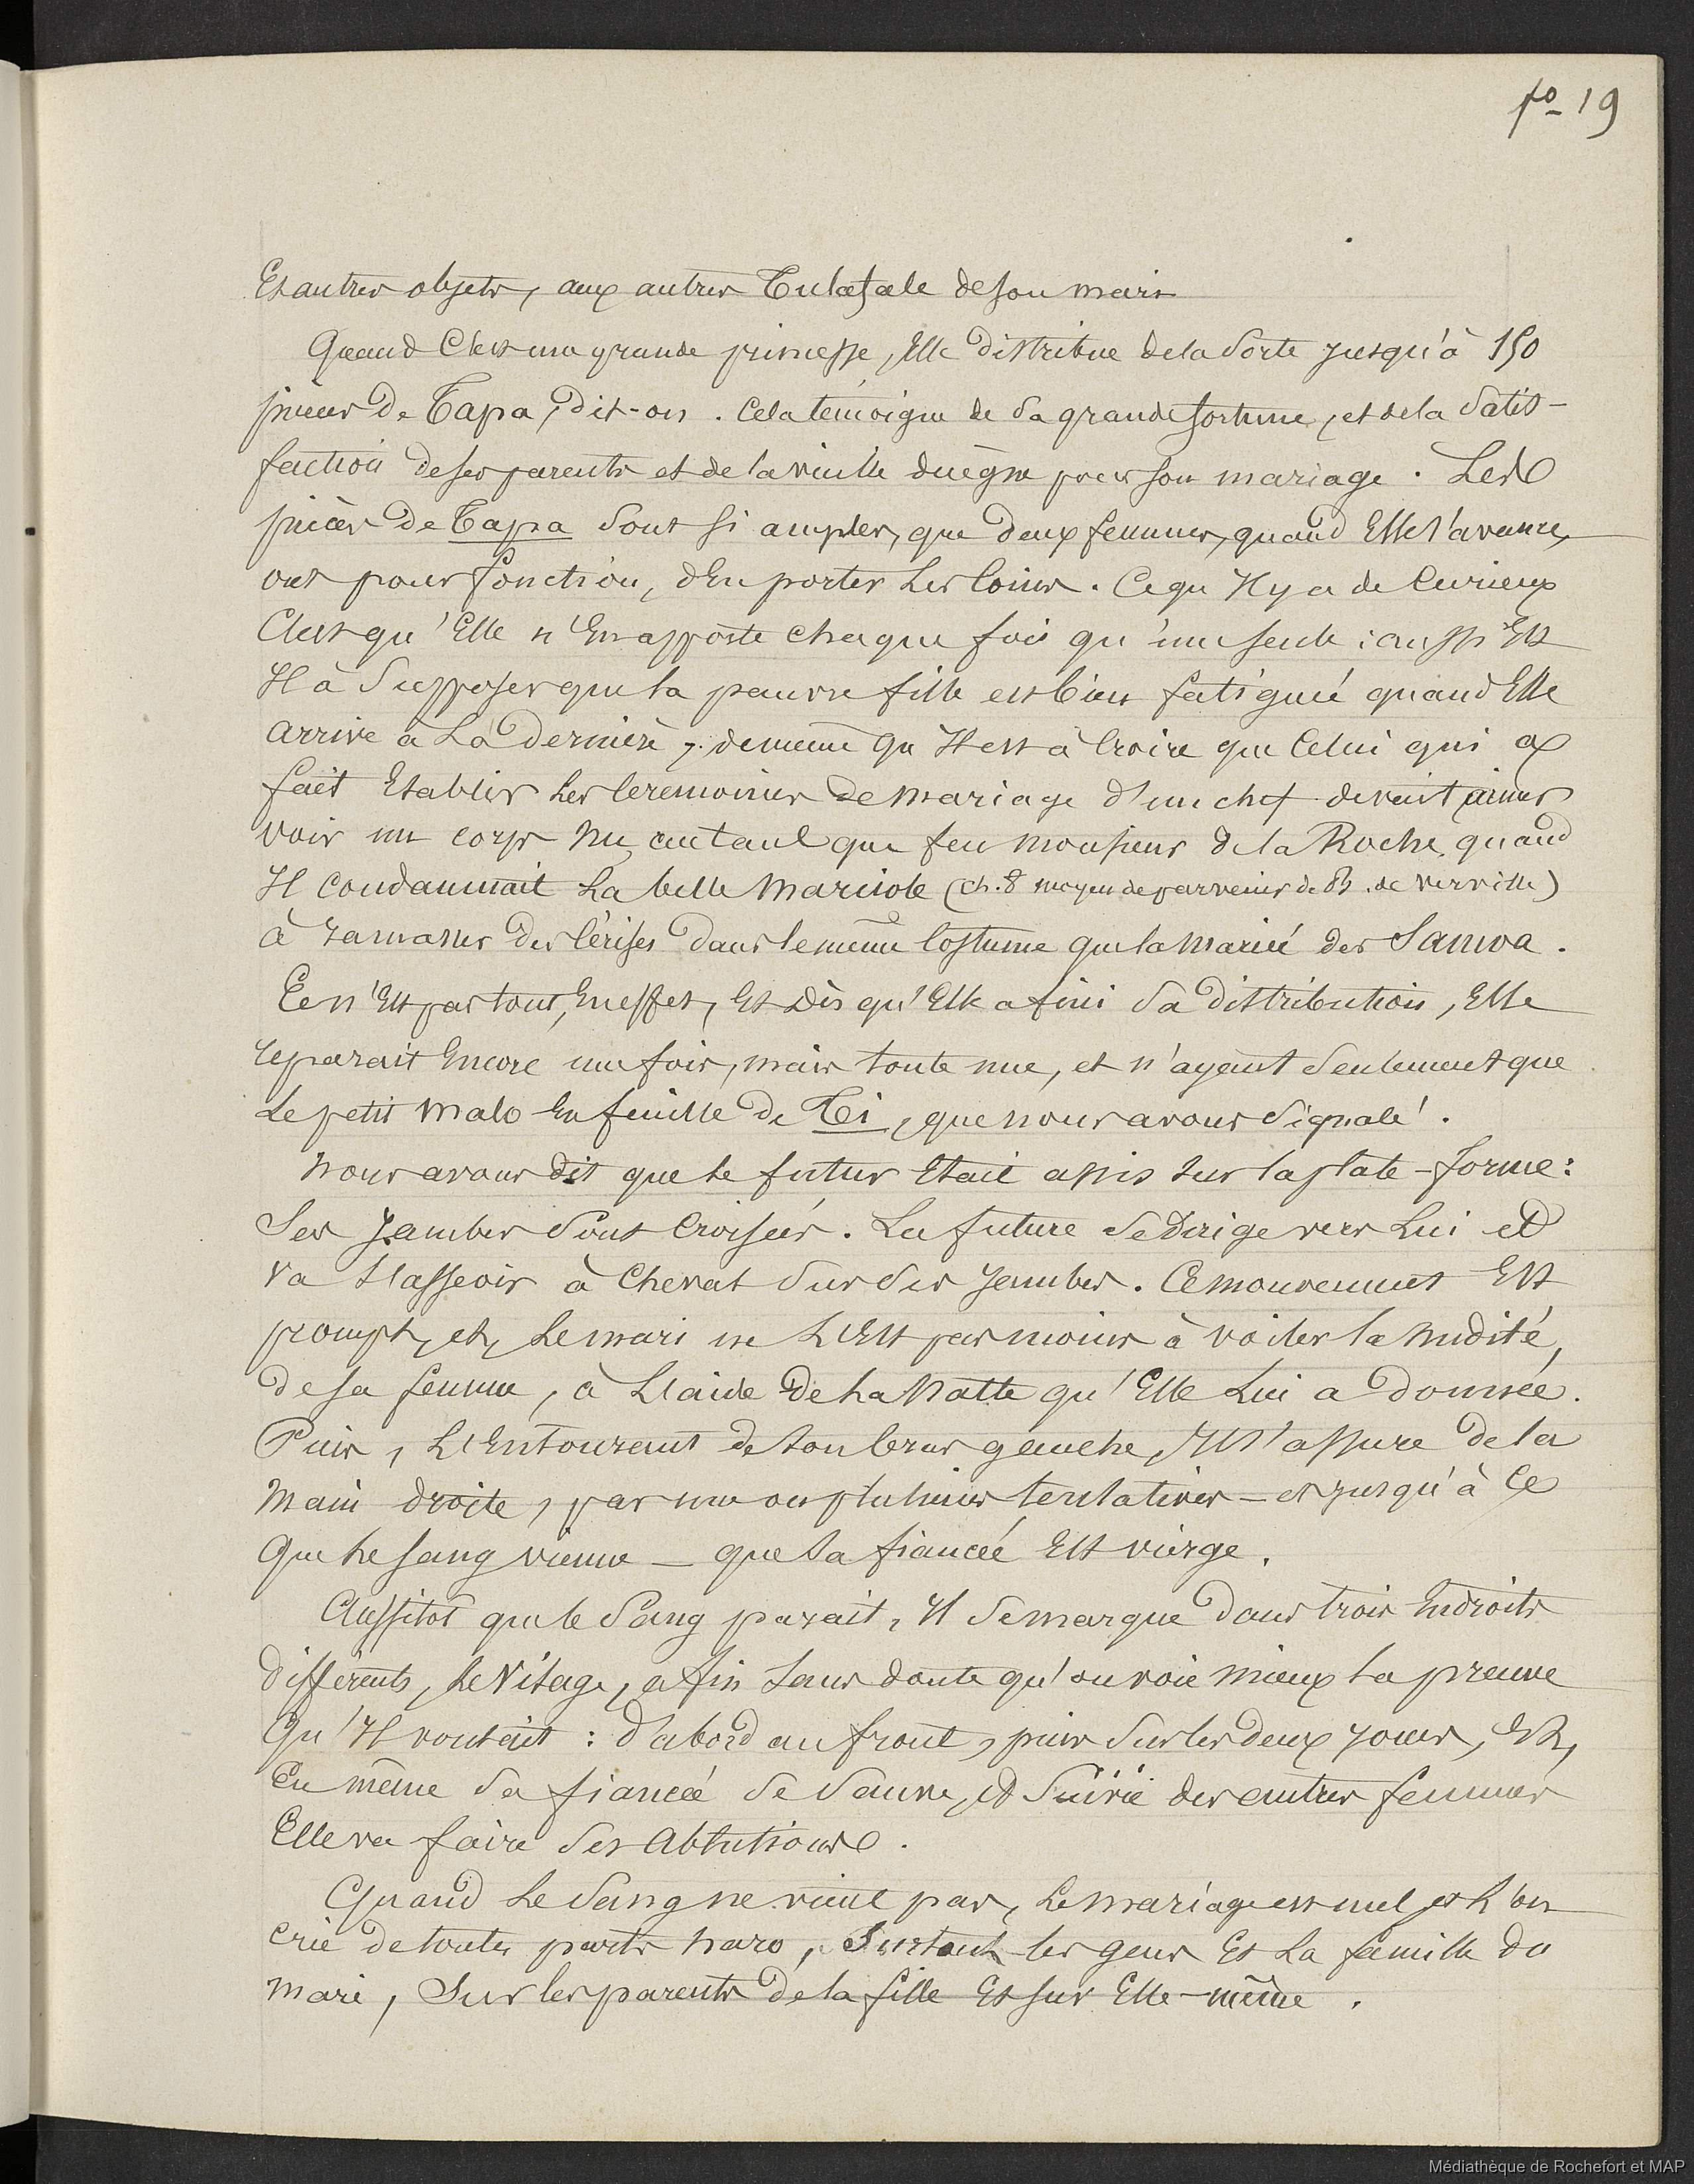 fo 19
Et autres objets, aux autres Tulafale de son mari
Quand C'est une grande princesse, Elle distribue de la Sorte jusqu'à 150
pièces de Tapa, dit-on. Cela témoigne de Sa grande fortune, et de la Satis-
faction de ses parents et de la vieille duègne pour son mariage. Les
pièces de Tapa Sont si amples, que deux femmes, quand Elle S'avance,
ont pour fonction, d'En porter Les Coins. Ce qu'Il y a de Curieux
C'est qu'Elle n'En apporte chaque fois qu'une seule : aussi Est
Il à Supposer que la pauvre fille est bien fatiguée quand Elle
arrive à La dernière ; de même qu'Il est à Croire que Celui qui a
fait Etablir Les Cérémonies de Mariage d'un chef devait aimer
voir un corps Nu, autant que feu Monsieur de la Roche, quand
Il Condamnait La belle Marciole (ch. 8 moyen de parvenir de B. de Verville)
à ramasser des Cerises dans le même Costume que la Mariée des Samoa.
Ce n'Est pas tout, En effet, Et Dès qu'Elle a fini Sa distribution, Elle
reparait Encore une fois, mais toute nue, et n'ayant Seulement que
Le petit Malo En feuille de Ti, que nous avons Signalé.
Nous avons dit que le futur Etait assis sur la plate-forme :
Ses Jambes Sont Croisées. La future Se Dirige vers Lui et
va S'asseoir à Cheval Sur Ses Jambes. Ce mouvement Est
prompt, et, Le mari ne L'Est pas moins à voiler la Nudité,
de sa femme, à L'aide de La Natte qu'Elle Lui a Donnée.
Puis, L'Entourant de Son bras gauche, Il S'assure de la
Main droite, par une ou plusieurs tentatives — et jusqu'à Ce
Que le sang vienne — que Sa fiancée Est vierge.
Aussitôt que le Sang parait, Il Se marque dans trois Endroits
différents, le Visage, afin Sans doute qu'on voie mieux La preuve
Qu'Il voulait : d'abord au front, puis Sur les deux joues, Et,
En même Sa fiancée Se Sauve, et Suivie des autres femmes
Elle va faire Ses Ablutions.
Quand Le Sang ne vient pas, Le mariage est nul, et L'on
Crie de toutes parts haro, Surtout les gens Et La famille du
Mari, Sur les parents de la fille Et sur Elle-même.
Médiathèque de Rochefort et MAP